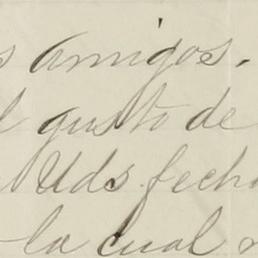 s amigos.
l gusto de
Uds fech
la cual